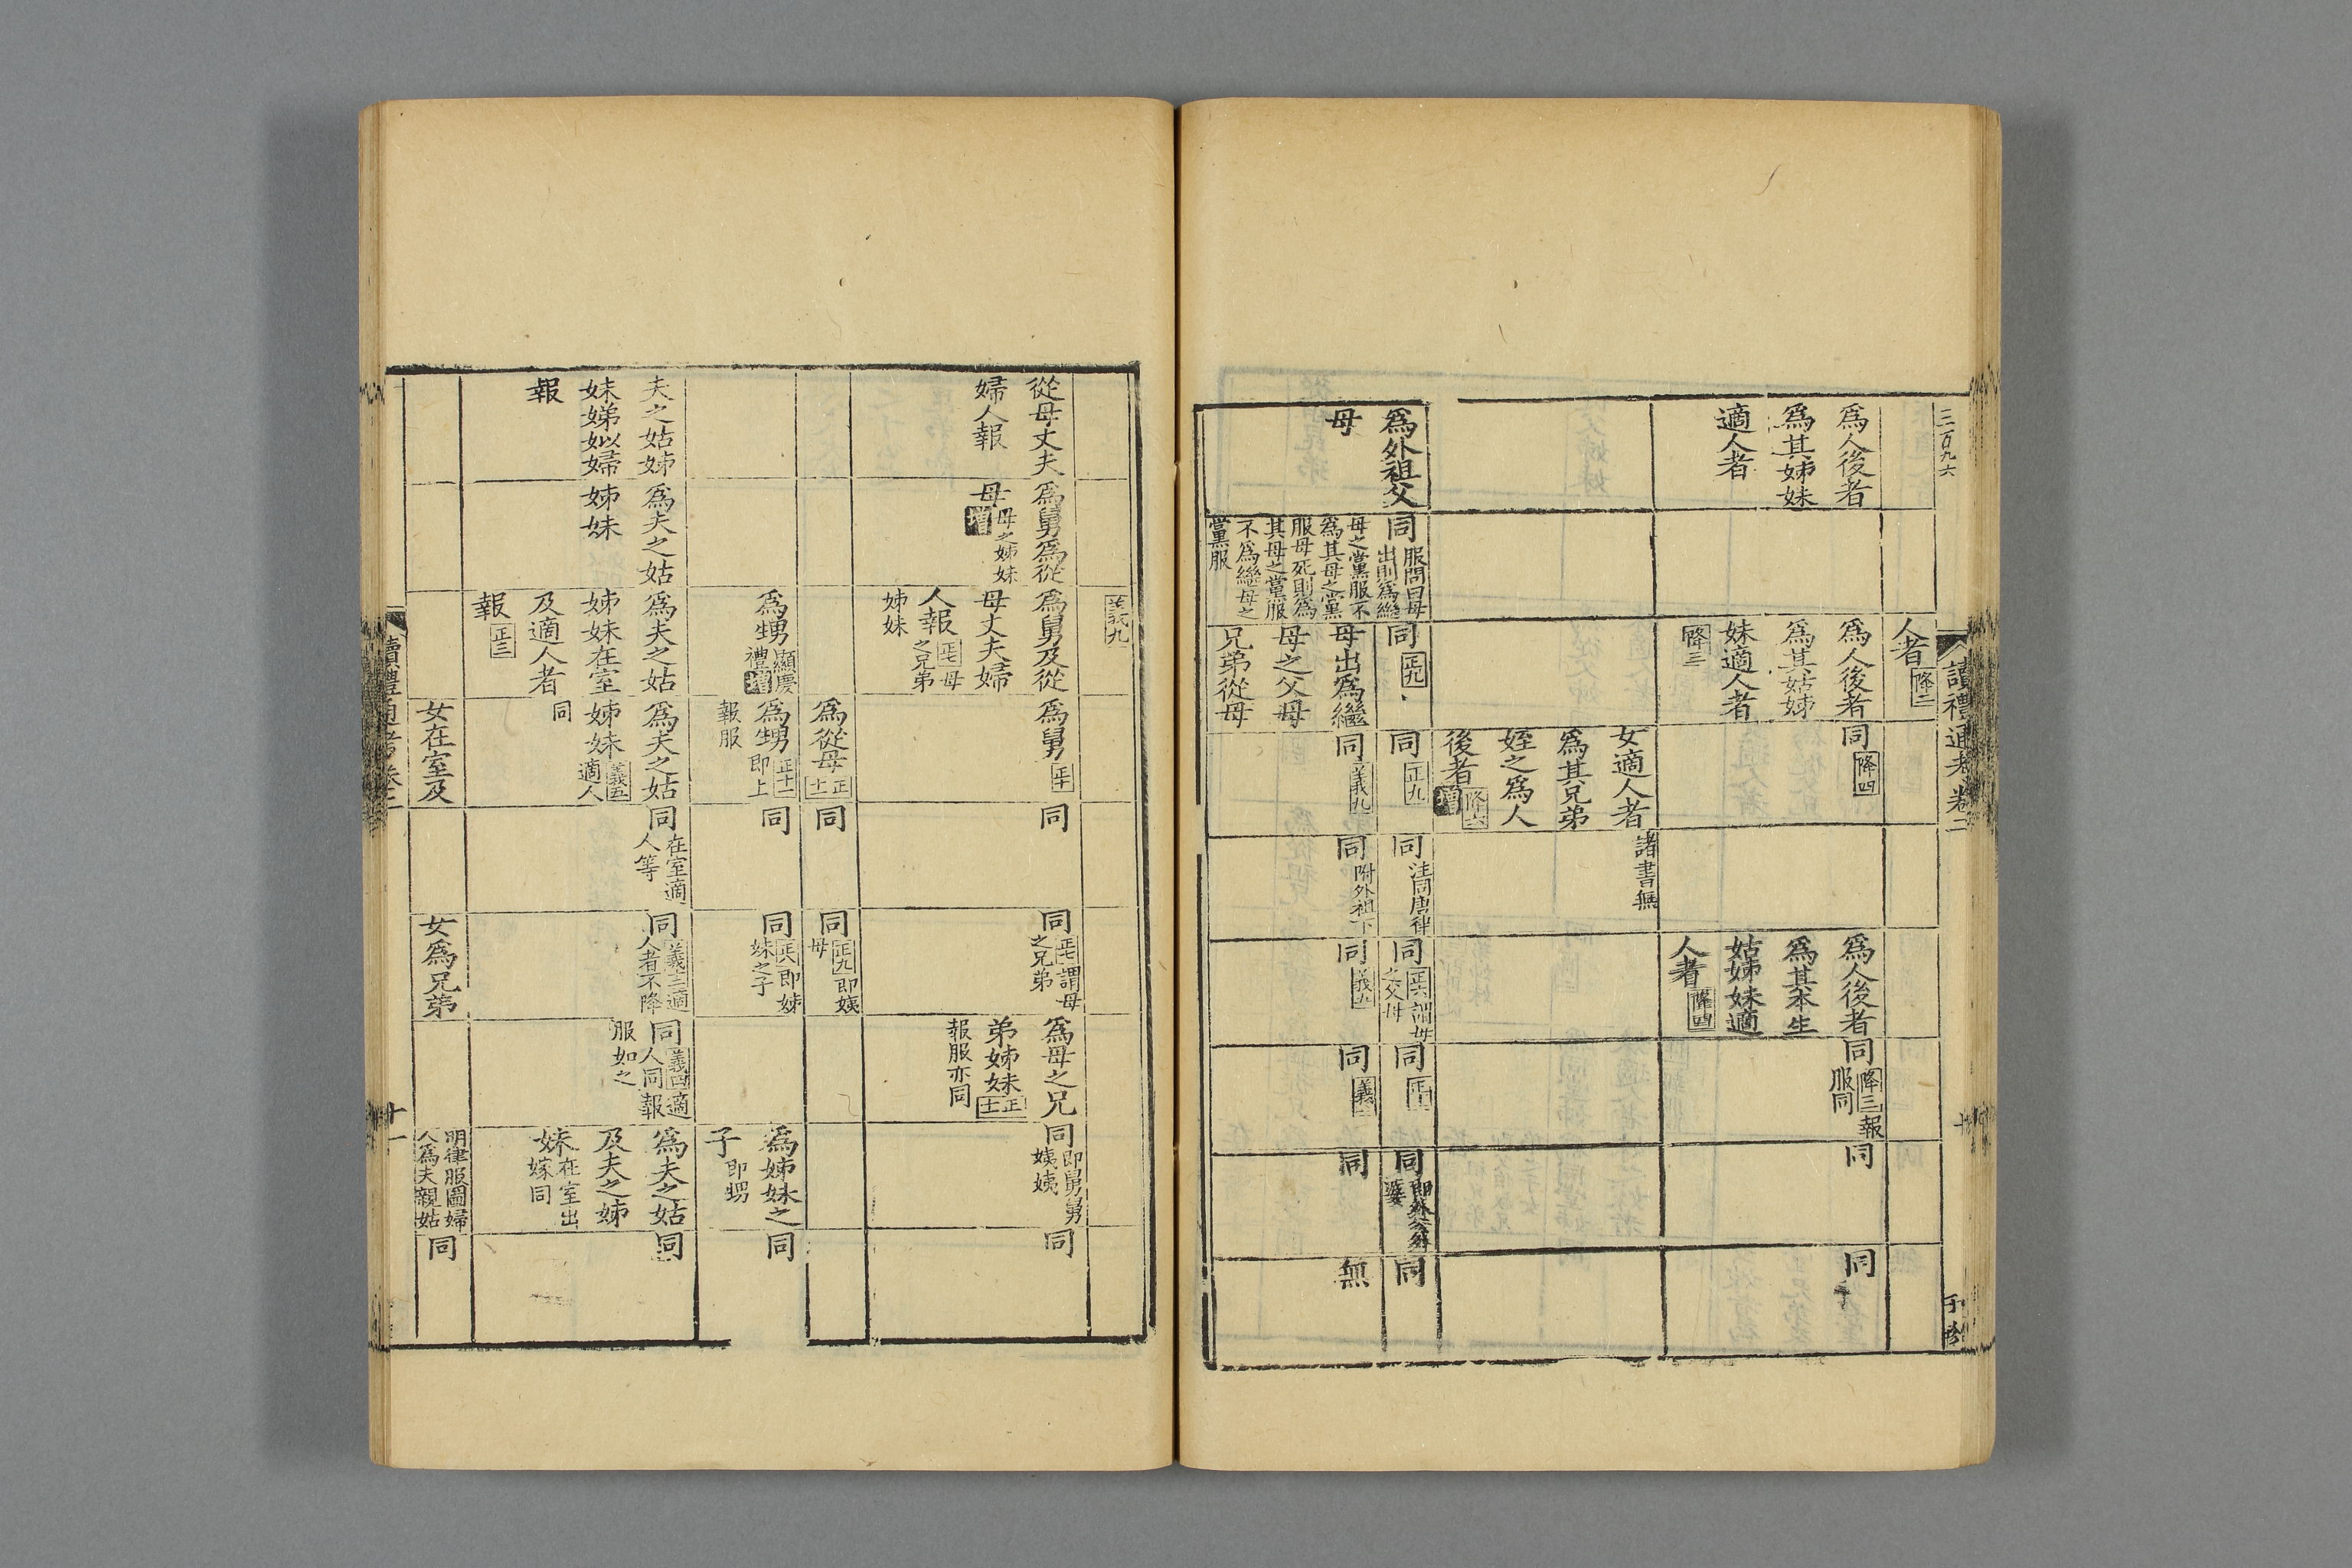 三百九六
讀禮通考卷二
人者降二
爲人後者
爲其姊妹
適人者
爲人後者
爲其姑姊
妹適人者
降三
同降四
爲人後者
爲其本生
姑姊妹適
人者降四
同降三報
服同
同
同
女適人者
爲其兄弟
姪之爲人
後者增降六
諸書無
爲外祖父
母
同服問曰母
出則爲繼
母之黨服不
爲其母之黨
服母死則爲
其母之黨服
不爲繼母之
黨服
同正九
同正九
同注同唐律
同正六謂母
之父母
同
同即外公外
婆
同
母出爲繼
母之父母
兄弟從母
同義九
同附外祖下
同義九
同義
同
無
義九
從母丈夫
婦人報
爲舅爲從
母母之姊妹
增
爲舅及從
母丈夫婦
人報正七母
之兄弟
姊妹
爲舅正十
同
同正七謂母
之兄弟
爲母之兄
弟姊妹正十
報服亦同
同即舅舅
姨姨
同
爲從母正十
同
同正九即姨
母
爲甥顯慶
禮增
爲甥正十一
即上
報服
同
同正八即姊
妹之子
爲姊妹之
子即甥
同
夫之姑姊
妹娣姒婦
報
爲夫之姑
姊妹
爲夫之姑
姊妹在室
及適人者
報正三
爲夫之姑
姊妹義五
適人
同
同在室適
人等
同義十三適
人者不降
同義四適
人同報
服如之
爲夫之姑
及夫之姊
妹在室出
嫁同
同
女在室及
女爲兄弟
明律服圖婦
人爲夫親姑
同
讀禮通考卷二
十一